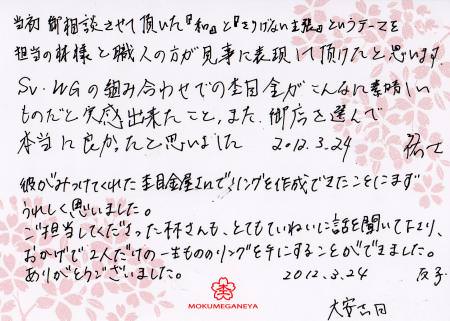 当初御相談させて頂いた『和』と『さりげない主張』というテーマを
担当の林様と職人の方が見事に表現して頂けたと思います。
Sv・WGの組み合わせでの杢目金がこんなに素晴しい
ものだと実感出来たこと、また、御店を選んで
本当に良かったと思いました 2012.3.24 祐士
彼がみつけてくれた杢目金屋さんでリングを作成できたことにまず
うれしく思いました。
ご担当してくださった林さんも、とてもていねいに話を聞いて下さり、
おかげで2人だけの一生もののリングを手にすることができました。
ありがとうございました。 2012.3.24 友子
MOKUMEGANEYA